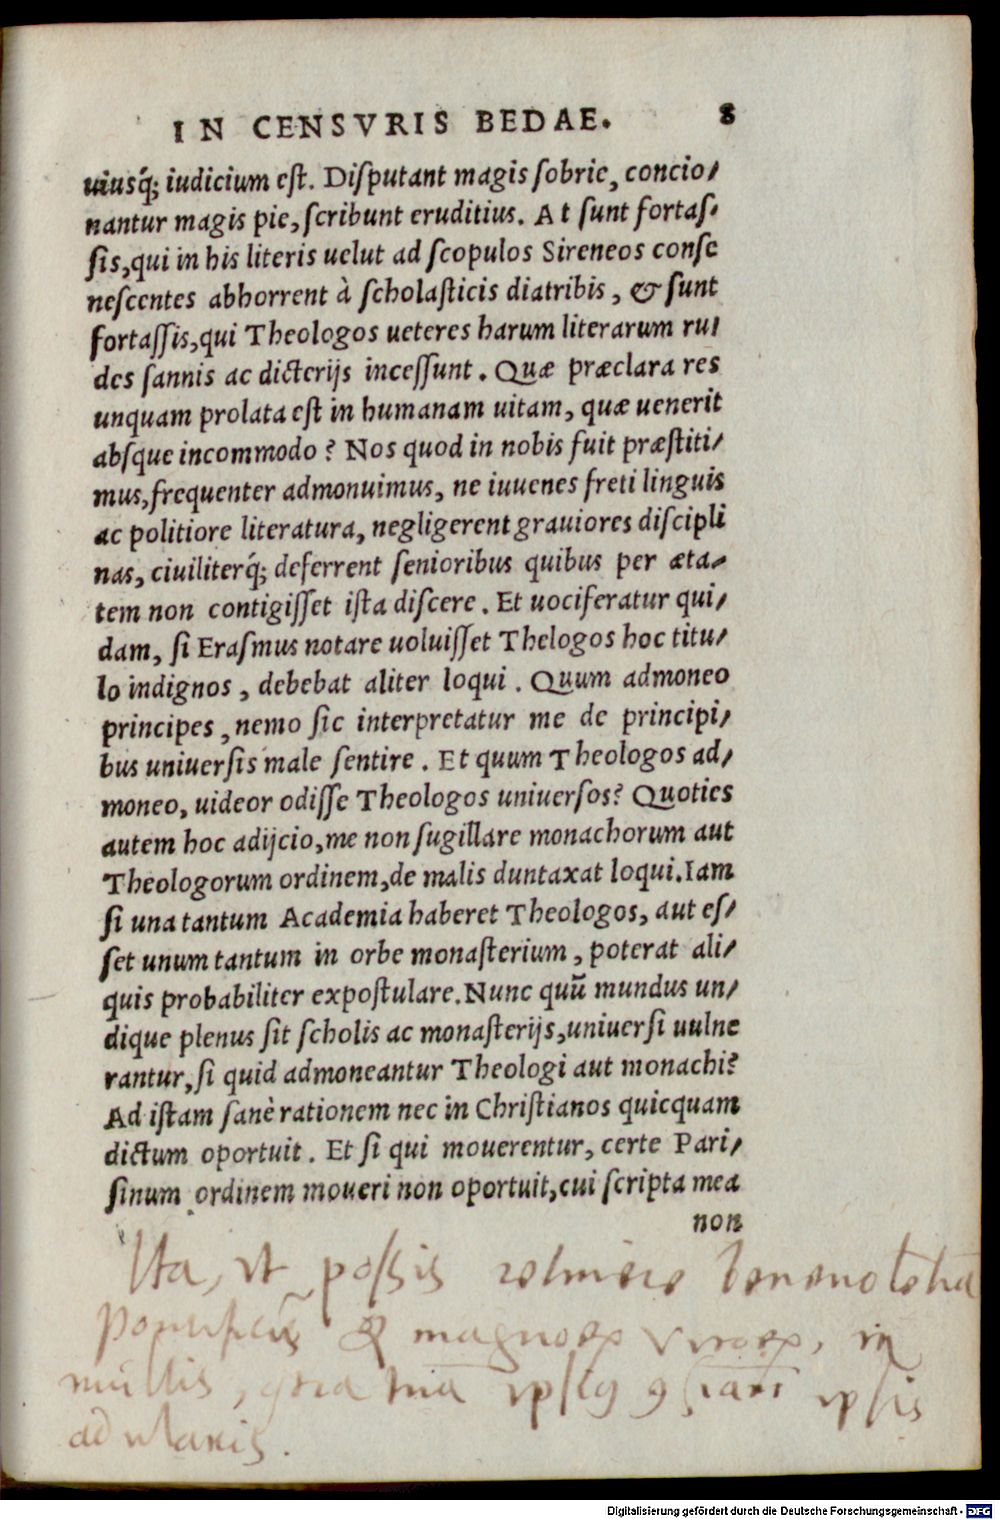 IN CENSVRIS BEDAE. 8
uiusq́; iudicium eſt. Diſputant magis ſobrie, concio/
nantur magis pie, ſcribunt eruditius. At ſunt fortaſ/
ſis, qui in his literis uelut ad ſcopulos Sireneos conſe
neſcentes abhorrent à ſcholaſticis diatribis, & ſunt
fortaſſis, qui Theologos ueteres harum literarum ru/
des ſannis ac dicterijs inceſſunt. Quæ præclara res
unquam prolata eſt in humanam uitam, quæ uenerit
abſque incommodo? Nos quod in nobis fuit præſtiti/
mus, frequenter admonuimus, ne iuuenes freti linguis
ac politiore literatura, negligerent grauiores diſcipli
nas, ciuiliterq́; deferrent ſenioribus quibus per æta/
tem non contigiſſet iſta diſcere. Et uociferatur qui/
dam, ſi Eraſmus notare uoluiſſet Thelogos hoc titu/
lo indignos, debebat aliter loqui. Quum admoneo
principes, nemo ſic interpretatur me de principi/
bus uniuerſis male ſentire. Et quum Theologos ad/
moneo, uideor odiſſe Theologos uniuerſos? Quoties
autem hoc adijcio, me non ſugillare monachorum aut
Theologorum ordinem, de malis duntaxat loqui. Iam
ſi una tantum Academia haberet Theologos, aut eſ/
ſet unum tantum in orbe monaſterium, poterat ali/
quis probabiliter expoſtulare. Nunc quū mundus un/
dique plenus ſit ſcholis ac monaſterijs, uniuerſi uulne
rantur, ſi quid admoneantur Theologi aut monachi?
Ad iſtam ſanè rationem nec in Chriſtianos quicquam
dictum oportuit. Et ſi qui mouerentur, certe Pari/
ſinum ordinem moueri non oportuit, cui ſcripta mea
non
Ita, vt poſſis retinere
& magnos viros, in
multis,
adularis.